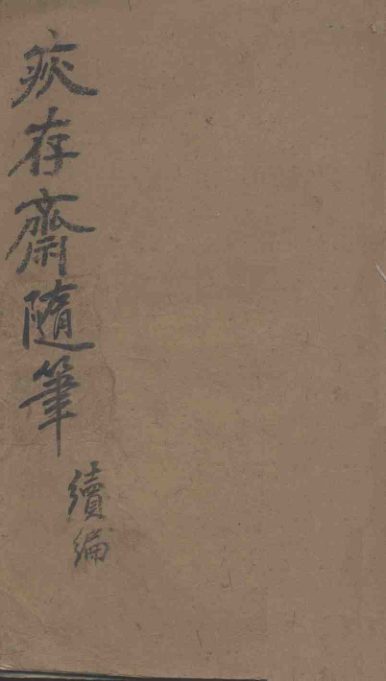 疢存齋隨筆
續編